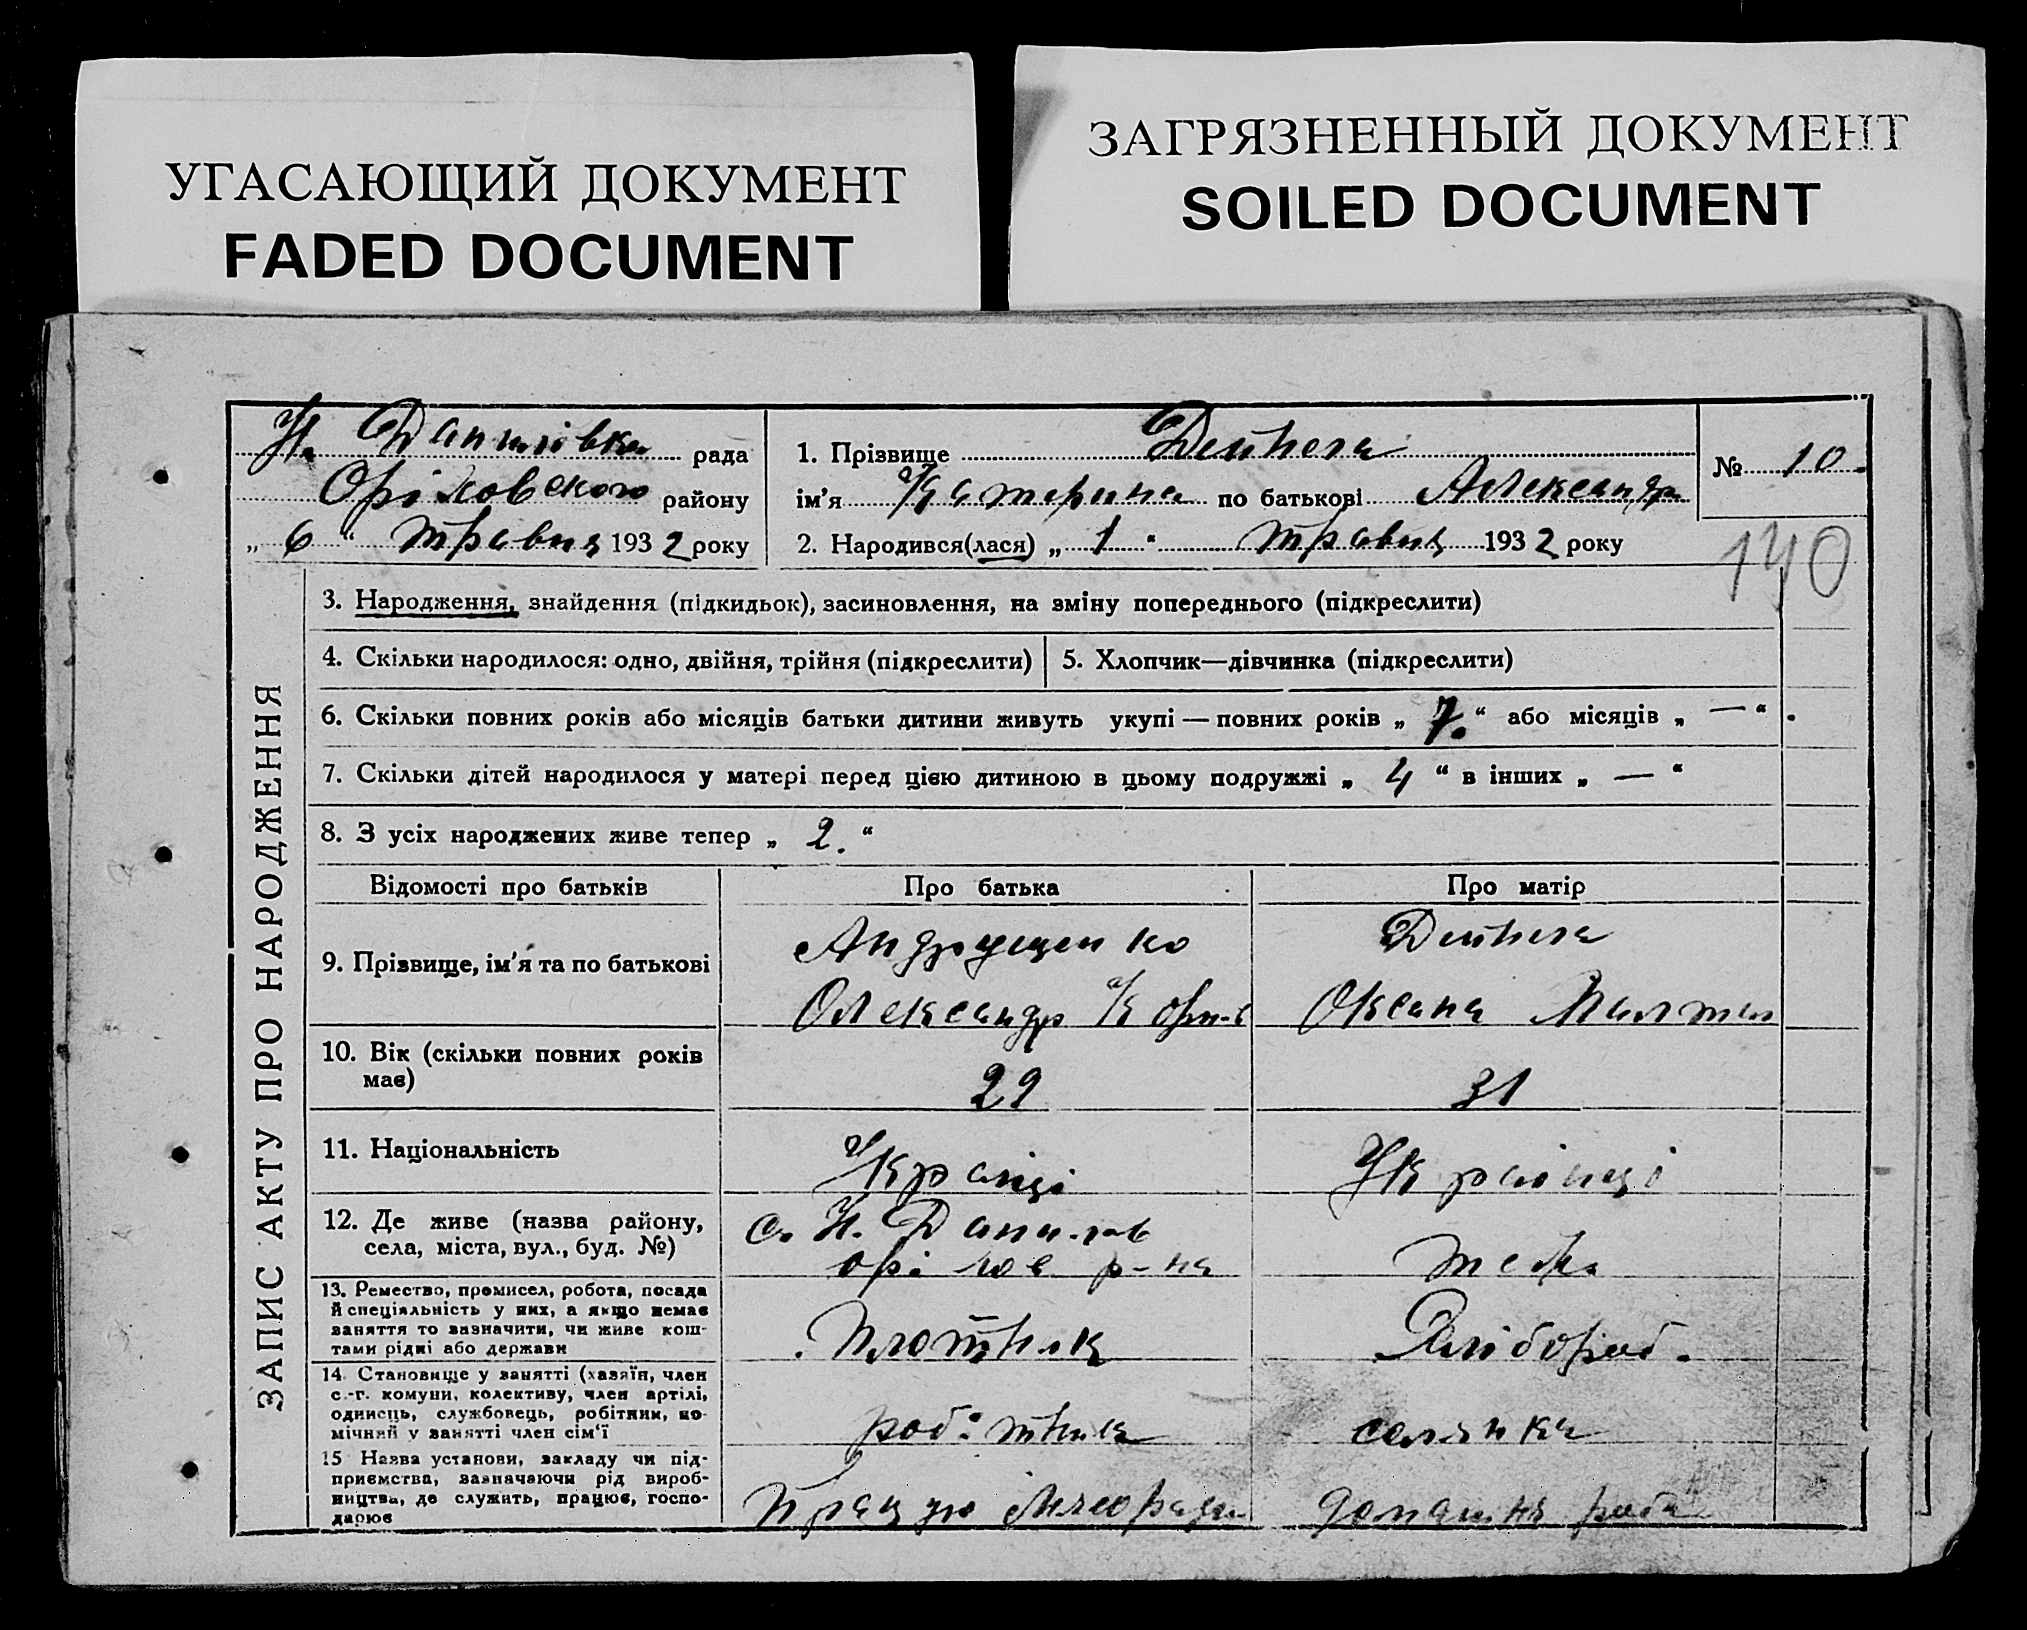 УГАСАЮЩИЙ ДОКУМЕНТ
FADED DOCUMENT
ЗАГРЯЗНЕННЫЙ ДОКУМЕНТ
SOILED DOCUMENT
Н. Данилівка рада
Оріховского району
„ 6 “ травня 1932 року
1. Прізвище
ім'я Катерина по батькові Александр
2. Народився(лася) „ 1 “ травня 1932 року
№ 10.
140
ЗАПИС АКТУ ПРО НАРОДЖЕННЯ
3. Народження, знайдення (підкидьок), засиновлення, на зміну попереднього (підкреслити)
4. Скільки народилося: одно, двійня, трійня (підкреслити)
5. Хлопчик—дівчинка (підкреслити)
6. Скільки повних років або місяців батьки дитини живуть укупі — повних років „ 7. “ або місяців „ — “
7. Скільки дітей народилося у матері перед цією дитиною в цьому подружжі „ 4 “ в інших „ — “
8. З усіх народжених живе тепер „ 2. “
Відомості про батьків
Про батька
Про матір
9. Прізвище, ім'я та по батькові
Андрущенко
Олександр
Оксана
10. Вік (скільки повних років
має)
29
31
11. Національність
Українці
12. Де живе (назва району,
села, міста, вул., буд. №)
с. Н. Данилов
Оріхов р-на
теж.
13. Ремество, промисел, робота, посада
й спеціяльність у них, а якщо немає
заняття то зазначити, чи живе кош-
тами рідні або держави
Плотник
Хлібороб.
14. Становище у занятті (хазяїн, член
с.-г. комуни, колективу, член артілі,
одинець, службовець, робітник, по-
мічний у занятті член сім'ї
робітник
селянка
15 Назва установи, закладу чи під-
приємства, зазначаючи рід вироб-
ництва, де служить, працює, госпо-
дарює
Працую
домашня робо